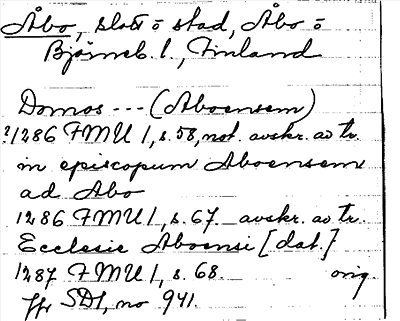 Åbo, slott o stad, Åbo o
Björneb. l., Finland
Domos --- (Aboensem)
?1286 FMU 1, s. 58, not. avskr. av tr.
in episcopum Aboensem
ad Abo
1286 FMU 1, s. 67. avskr. av tr.
Ecclesie Aboensi [dat.]
1287 FMU 1, s. 68. orig.
jfr SD1, no 941.